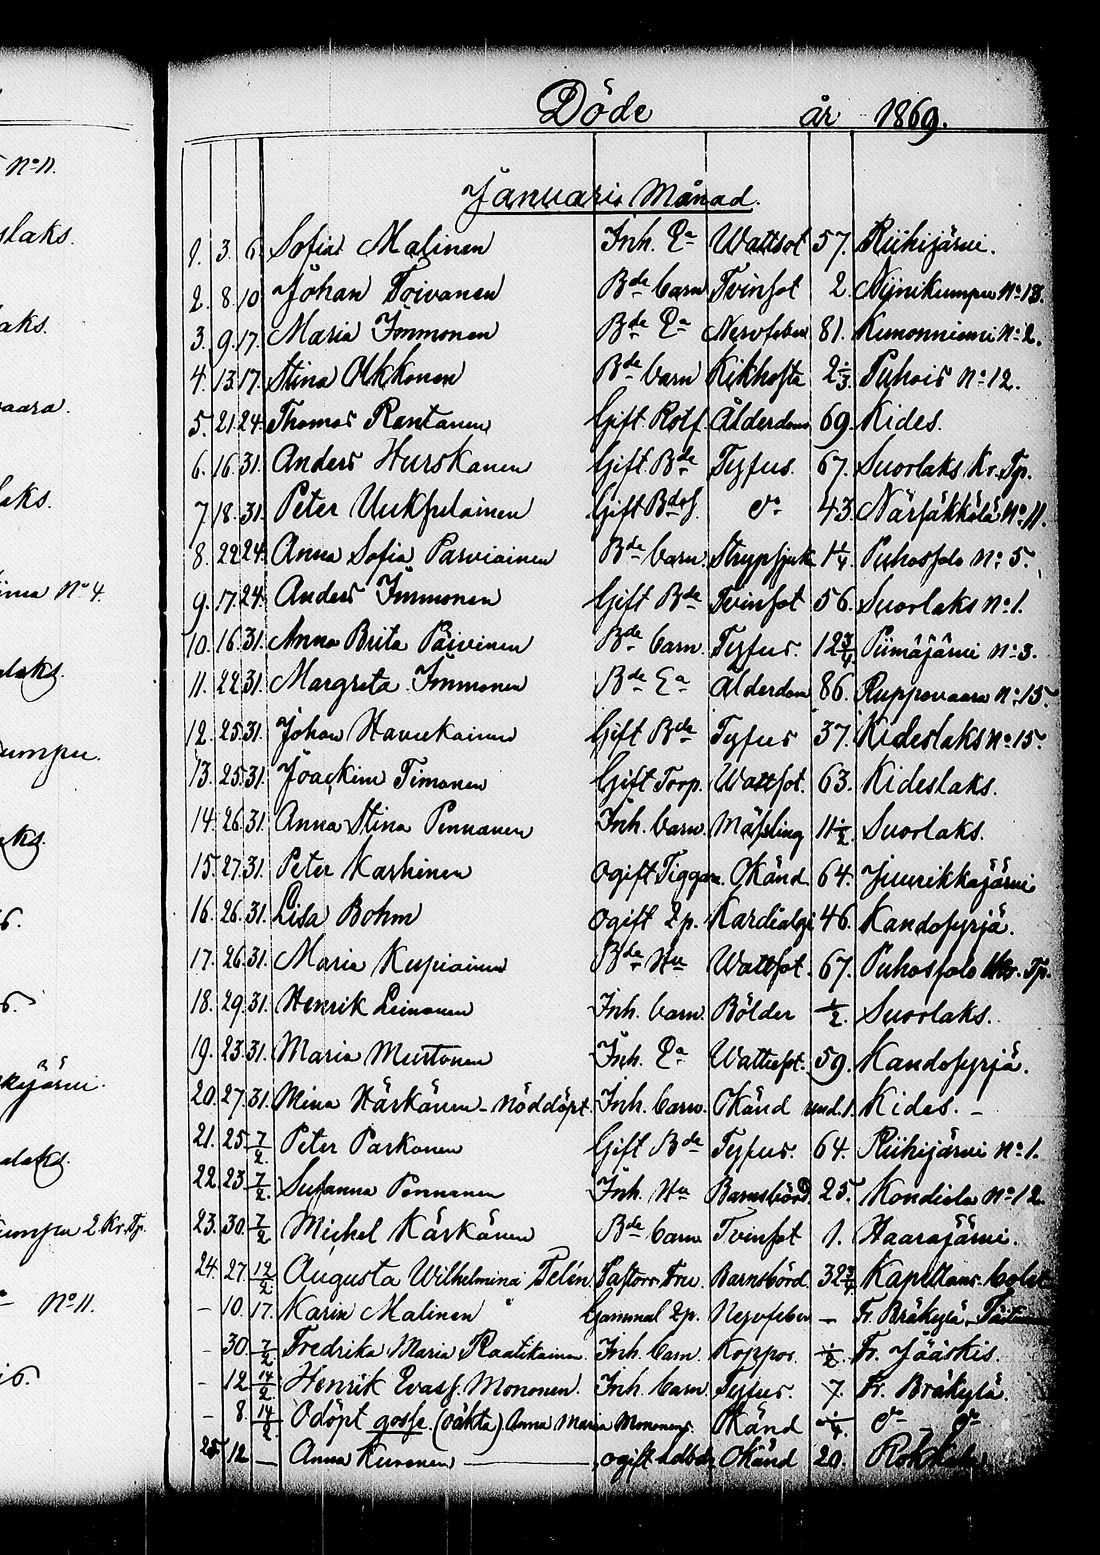 Döde år 1869.
Januari Månad.
1. 3. 6. Sofia Malinen Inh. Ea Wattsot 57. Riihijärvi.
2. 8. 10 Johan Toivanen Bde barn Tvinsot 2. Niinikumpu No 13.
3. 9. 17. Maria Immonen Bde Ea Nervfeber 81. Kunonniemi No 2.
4. 13. 17. Stina Okkonen Bde barn Kikhosta 2 1/3 Puhois No 12.
5. 21. 24. Thomas Rantanen Gift Rotf. Ålderdom 69. Kides.
6. 16. 31. Anders Hurskanen Gift Bde Tyfus. 67. Suorlaks Kr. Tp.
7 18. 31. Peter Uukfulainen Gift Bdes do 43. Närsäkkälä No 11.
8. 22 24. Anna Sofia Parviainen Bde barn. Strypsjuk 1 1/4 Puhossalo No 5.
9. 17. 24. Anders Immonen Gift Bde Tvinsot 56. Suorlaks No 1.
10. 16. 31. Anna Brita Päivinen Bde barn. Tyfus. 12 3/4 Piimäjärvi No 3.
11. 22 31. Margreta Immonen Bde Ea Ålderdom 86. Ruppovaara No 15.
12. 25 31. Johan Havukainen Gift Bde Tyfus 37. Kideslaks No 15.
13. 25 31. Joackim Timonen Gift Torp. Wattsot. 63. Kideslaks.
14. 26. 31. Anna Stina Pennanen Inh. barn. Mässling 11 1/2 Suorlaks.
15. 27. 31. Peter Karhinen ogift Tiggare. Okänd 64. Juurikkajärvi
16. 26. 31. Lisa Bohm ogift 2p. Kardialgi 46. Kandosyrjä.
17. 26. 31. Maria Kupiainen Bde Hu Wattsot. 67. Puhossalo Kr. Tp.
18. 29. 31. Henrik Leinonen Inh. barn. Bölder 1/2. Suorlaks.
19. 23. 31. Maria Mustonen Inh. Ea Wattusot. 59. Kandosyrjä.
20. 27. 31. Mina Härkänen - Nöddöpt. Inh. barn. Okänd und. 1. Kides. –
21. 25. 7/2. Peter Parkonen Gift Bde Tyfus. 64. Riihijärvi No 1.
22. 23. 7/2. Susanna Pennanen Inh. Hu Barnsbörd. 25. Kondiola No 12
23. 30. 7/2 Michel Kärkänen Bde barn Tvinsot 1. Haarajärvi.
24. 27. 12/2 Augusta Wilhelmina Telén. Pastors Fru. Barnsbörd. 32 3/4 Kapellans bolst
– 10. 17. Karin Malinen Gammal 2p. Nervfeber – Fr. Bräkylä
– 30. 7/2 Fredrika Maria Raatikainen. Inh. barn. Koppor. 1/2. Fr. Jääskis.
– 12 14/2. Henrik Evass. Mononen. Inh. barn Tyfus. 7. Fr. Bräkylä.
– 8. 14/2. Odöpt gosse. (oäkta) Anna Maria Mononens Okänd 1/4. do do
25 12. — Anna Kuronen — ogift Okänd 20.
No 11.
slaks.
aks.
vaara.
laks.
No 4.
umpu.
ekjärvi.
umpu 2 Kr. Tp.
No 11.